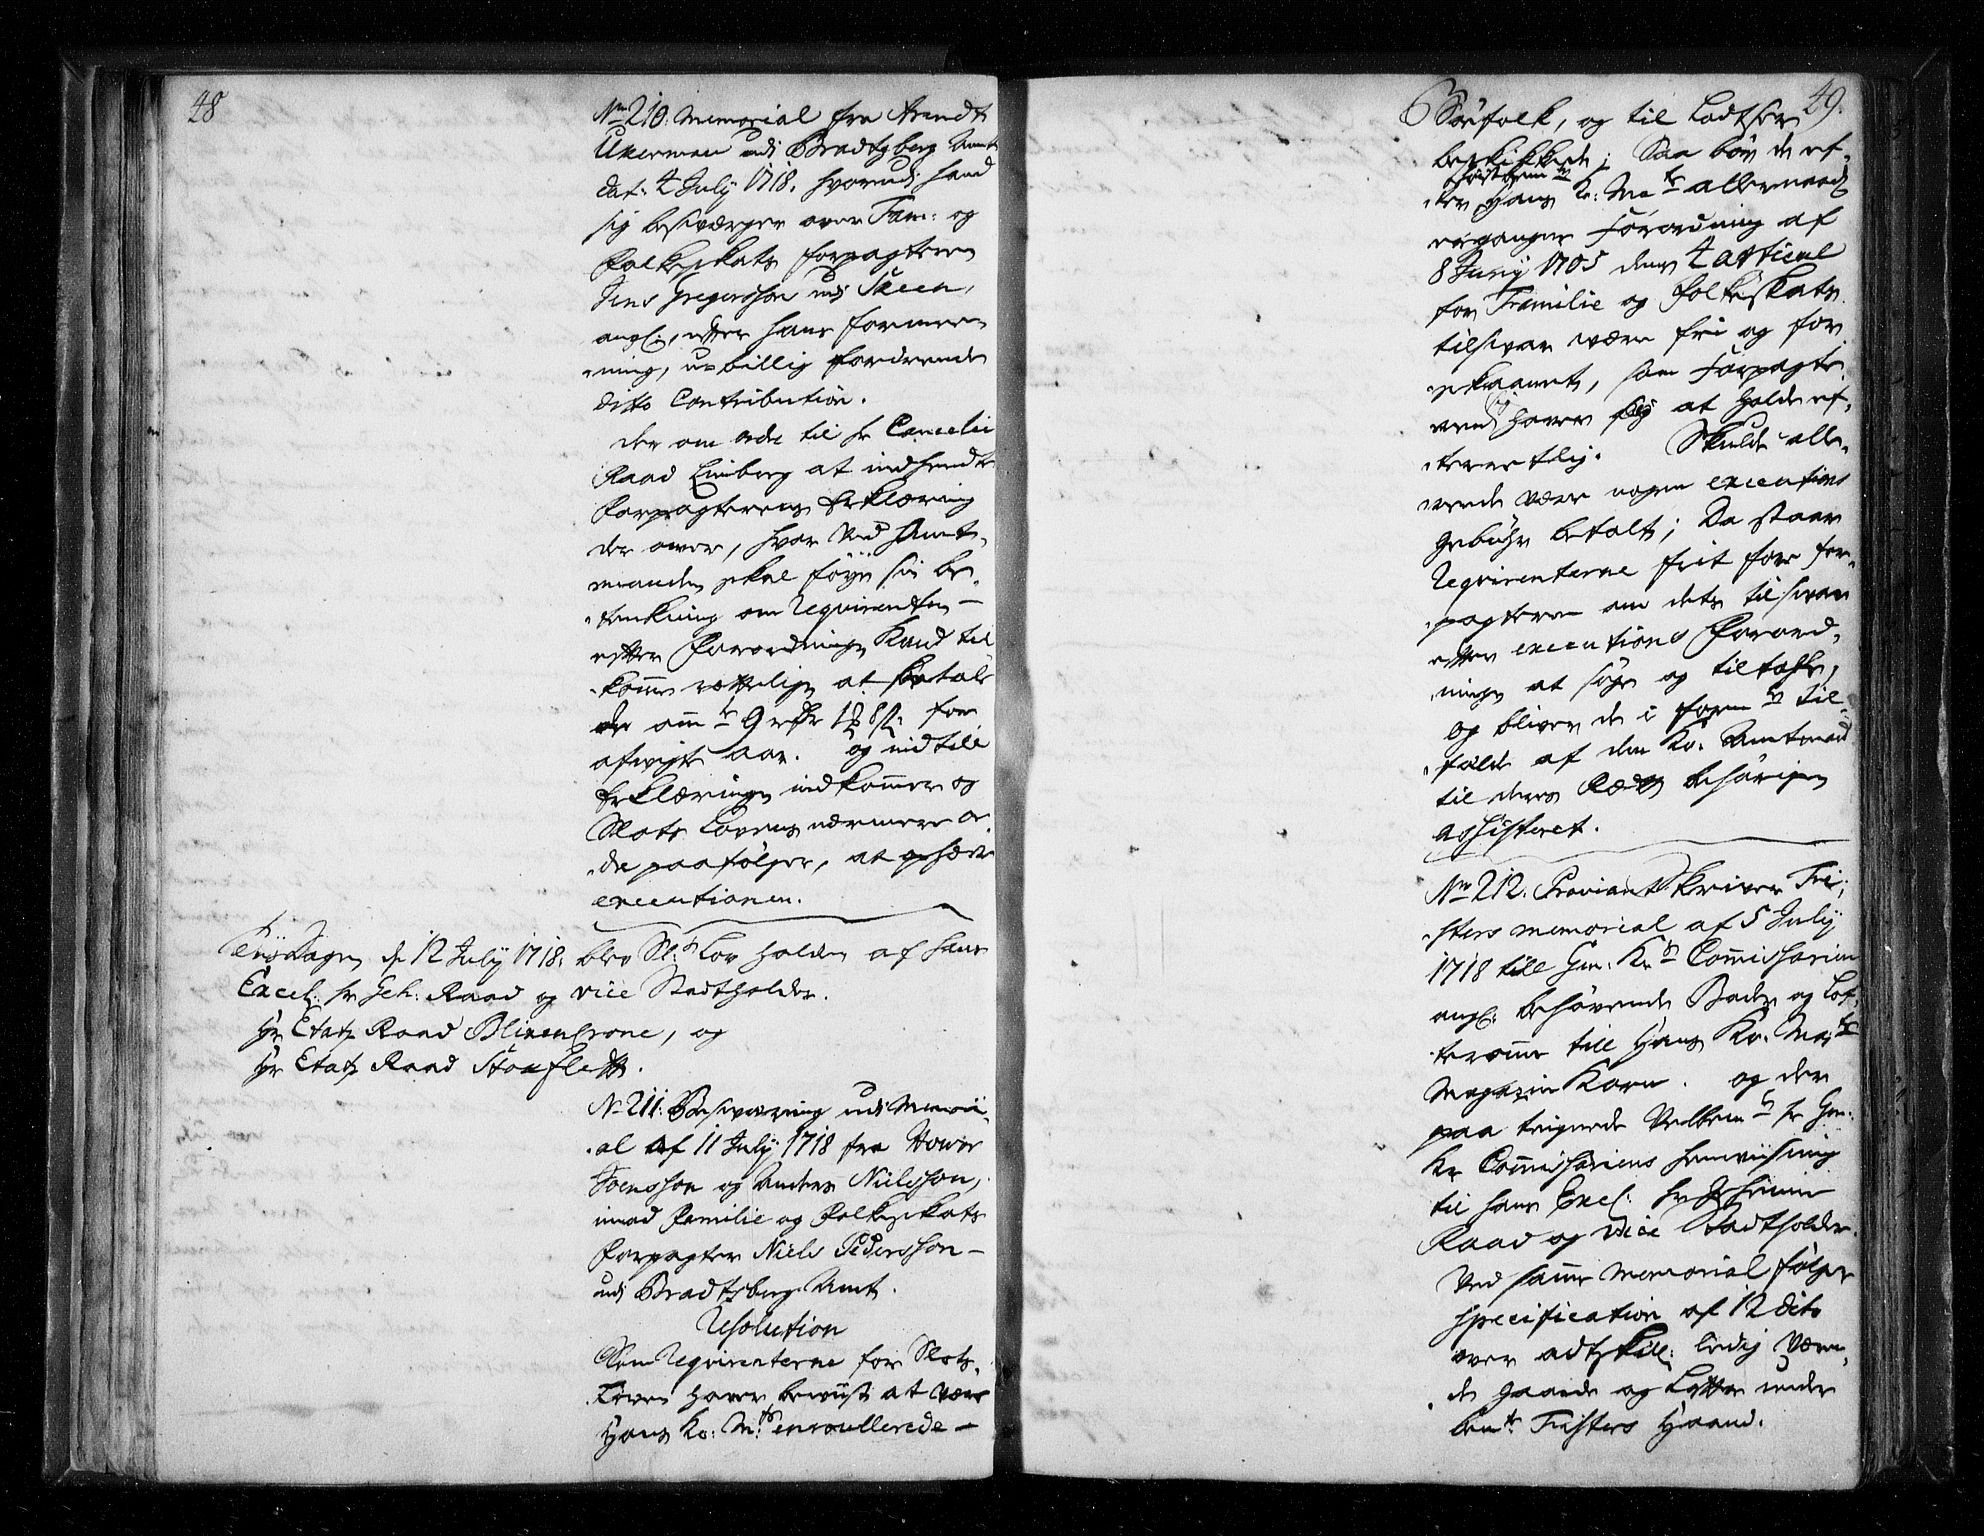 48
No 210. Memorial fra Arendt
Ukerman udj Bradtzberg Amt
dat: 4 July 1718. hvorudj hand
sig besværger over Fam: og
Folkeskats forpagteren
Jens Gregersson udj Skeen,
angl: efter hans formee-
ning, u-billig fordrende
ditto Contribution.
der om ordre til hr Cancelie
Raad Einberg at indhendte
Forpagterens Erklæring
der over, hvor ved Amt-
manden skal føye sin be-
tenkning om Reqvirenten
efter Forordningen Kand til
komme rettelig at betale
de omte 9 rdr 18 s. for
afvigte aar. og indtill
Erklæringen indkommer og
Slots Lovens nærmere or-
dre paafølger, at ophæve
executionen.
Tiisdagen d 12 July 1718. blev Sl: Lov holden af hans
Excel: hr Geh: Raad og vice Stadtholder.
Hr Etatz Raad Blixencrone, og
Hr Etatz Raad Stouflett.
No 211. Besværing udj Memori-
al af 11 July 1718 fra Hover
Svensson og Anders Nielsson,
imod Familie og Folkeskats
Forpagter Niels Pedersson
udj Bradtzberg Amt.
Resolution
Som Reqvirenterne for Slots-
Loven haver beviist at være
Hans Ko: Mts enroullerede
49.
Søefolk, og til Lodtser
beskikkede; Saa bør de ef-
ter Hans K: Mats allernaad
ergangne Forordning af
8 Junij 1705 dens 4 articul
for Familie og Folkeskats
tilsvar være fri og for
skaanet, som Forpagte
ren haver sig at holde ef-
terretlig. Skulde alle-
rede være nogen executions
Gebühr betalt; Da staar
Reqvirenterne frit for for-
pagteren om dets tilsvar
efter executions Forord-
ningen at søge og tiltale,
og bliver de i fornts til-
fælde af den Ko: Amtmand
til deres Rett behørigen
assisteret.
No 212. Proviantskriver Frei-
sters memorial af 5 July
1718 till Gen: Krs Commissarium
angl: behøvende Boder og Lof-
teromme till Hans Ko: Mayts
Magazin Korn. og der
paa teignede Velbemte hr Gen:
Kr Commissariens henviisning
til hans Excel: hr Geheime
Raad og vice Stadtholder.
Ved samme memorial følger
specification af 12 dito
over adtskill: ledig være-
de gaarde og Lofter under
bemte Freisters Haand.